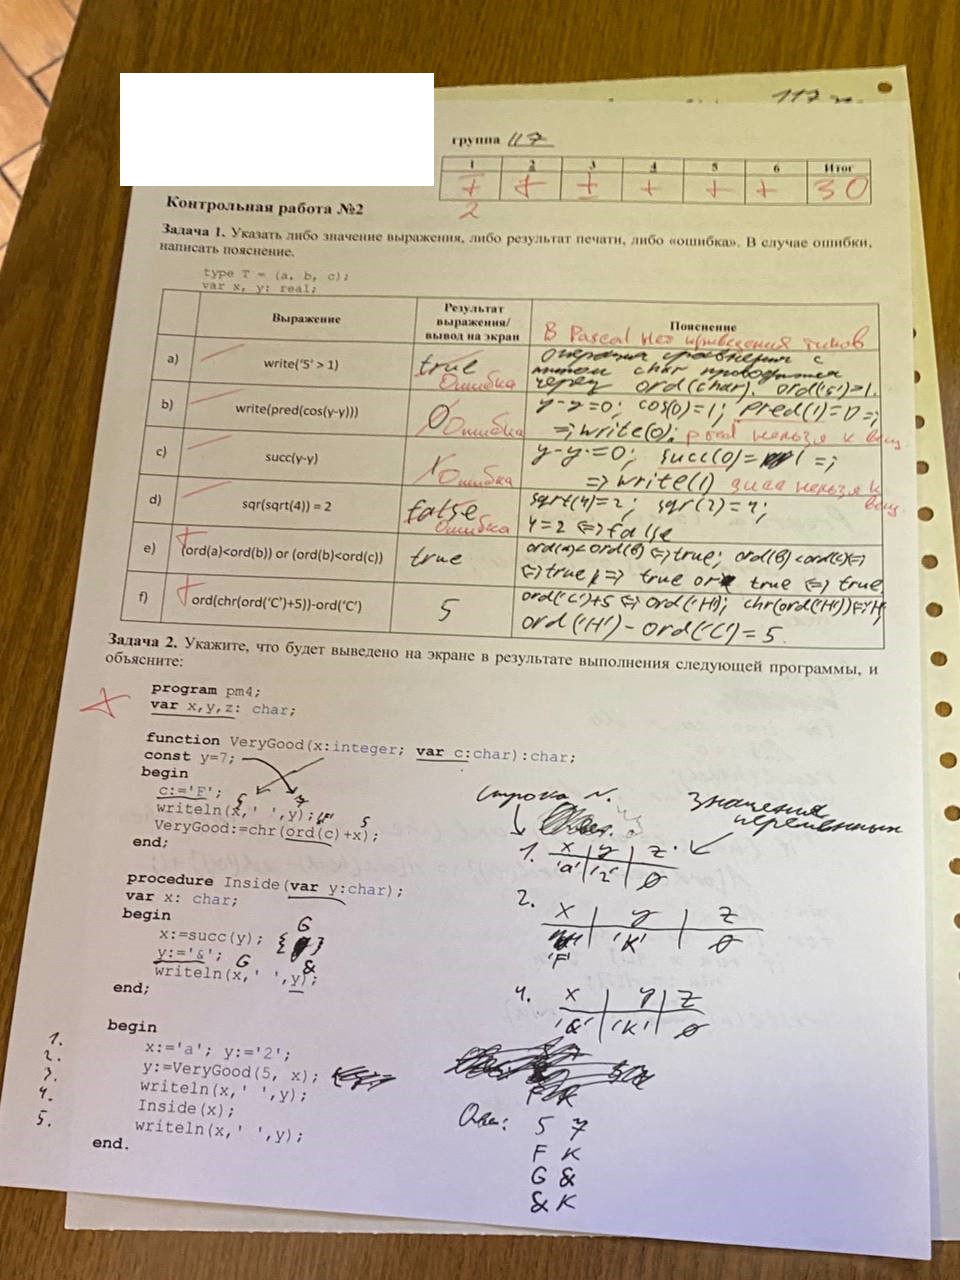 117
группа 117
1 2 3 4 5 6 Итог
+ + ± + + + 30
2
Контрольная работа №2
Задача 1. Указать либо значение выражения, либо результат печати, либо «ошибка». В случае ошибки,
написать пояснение.
type T = (a, b, c);
var x, y: real;
Выражение
Результат
выражения/
вывод на экран
Пояснение
В Pascal нет приведения типов
a)
write('5' > 1)
true
Ошибка
Операция сравнения с
типом char проводится
через ord(char). ord('5')>1.
b)
write(pred(cos(y-y)))
0 Ошибка
y-y=0; cos(0)=1; pred(1)=0 =>
=> write(0); pred нельзя к вещ.
c)
succ(y-y)
1 Ошибка
y-y=0; succ(0)= 1 =>
=> write(1) нельзя к
вещ.
d)
sqr(sqrt(4)) = 2
false
Ошибка
sqrt(4)=2; sqr(2)=4;
4=2 <=> false
e)
+
(ord(a)<ord(b)) or (ord(b)<ord(c))
true
ord(a)<ord(b) <=> true; ord(b)<ord(c) <=>
<=> true, => true or true <=> true
f)
+
ord(chr(ord('C')+5))-ord('C')
5
ord('C')+5 <=> ord('H'); chr(ord('H')) <=> 'H'
ord('H')-ord('C')=5.
Задача 2. Укажите, что будет выведено на экране в результате выполнения следующей программы, и
объясните:
+
program pm4;
var x,y,z: char;
function VeryGood(x:integer; var c:char):char;
const y=7;
begin
c:='F';
5 7
writeln(x,' ',y);
'F' 5
VeryGood:=chr(ord(c)+x);
end;
procedure Inside(var y:char);
var x: char;
begin
x:=succ(y); { G }
y:='&';
G &
writeln(x,' ',y);
end;
begin
1. x:='a'; y:='2';
2. y:=VeryGood(5, x);
3. writeln(x,' ',y);
4. Inside(x);
5. writeln(x,' ',y);
end.
Строка N.
Значения
переменных
1. x y z
'a' '2' ∅
2. x y z
'F' 'K' ∅
4. x y z
'&' 'K' ∅
Отв.: 5 7
F K
G &
& K